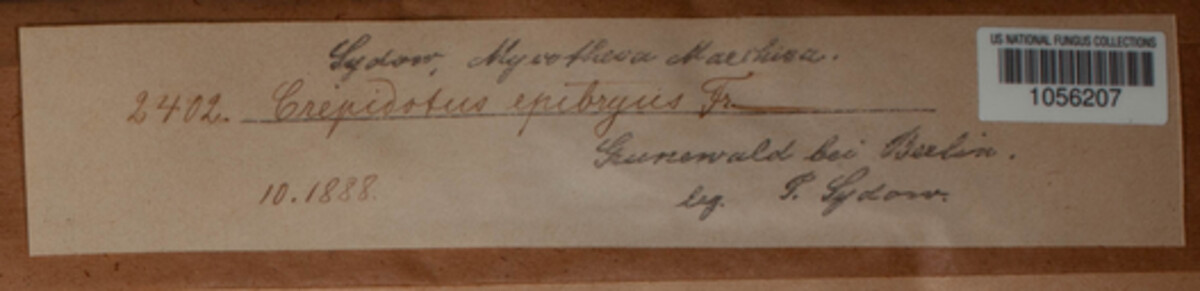 Sydow, Mycotheca Marchica.
2402. Crepidotus epibryus Fr.
Grunewald bei Berlin.
10.1888.
leg. P. Sydow.
US NATIONAL FUNGUS COLLECTIONS
1056207